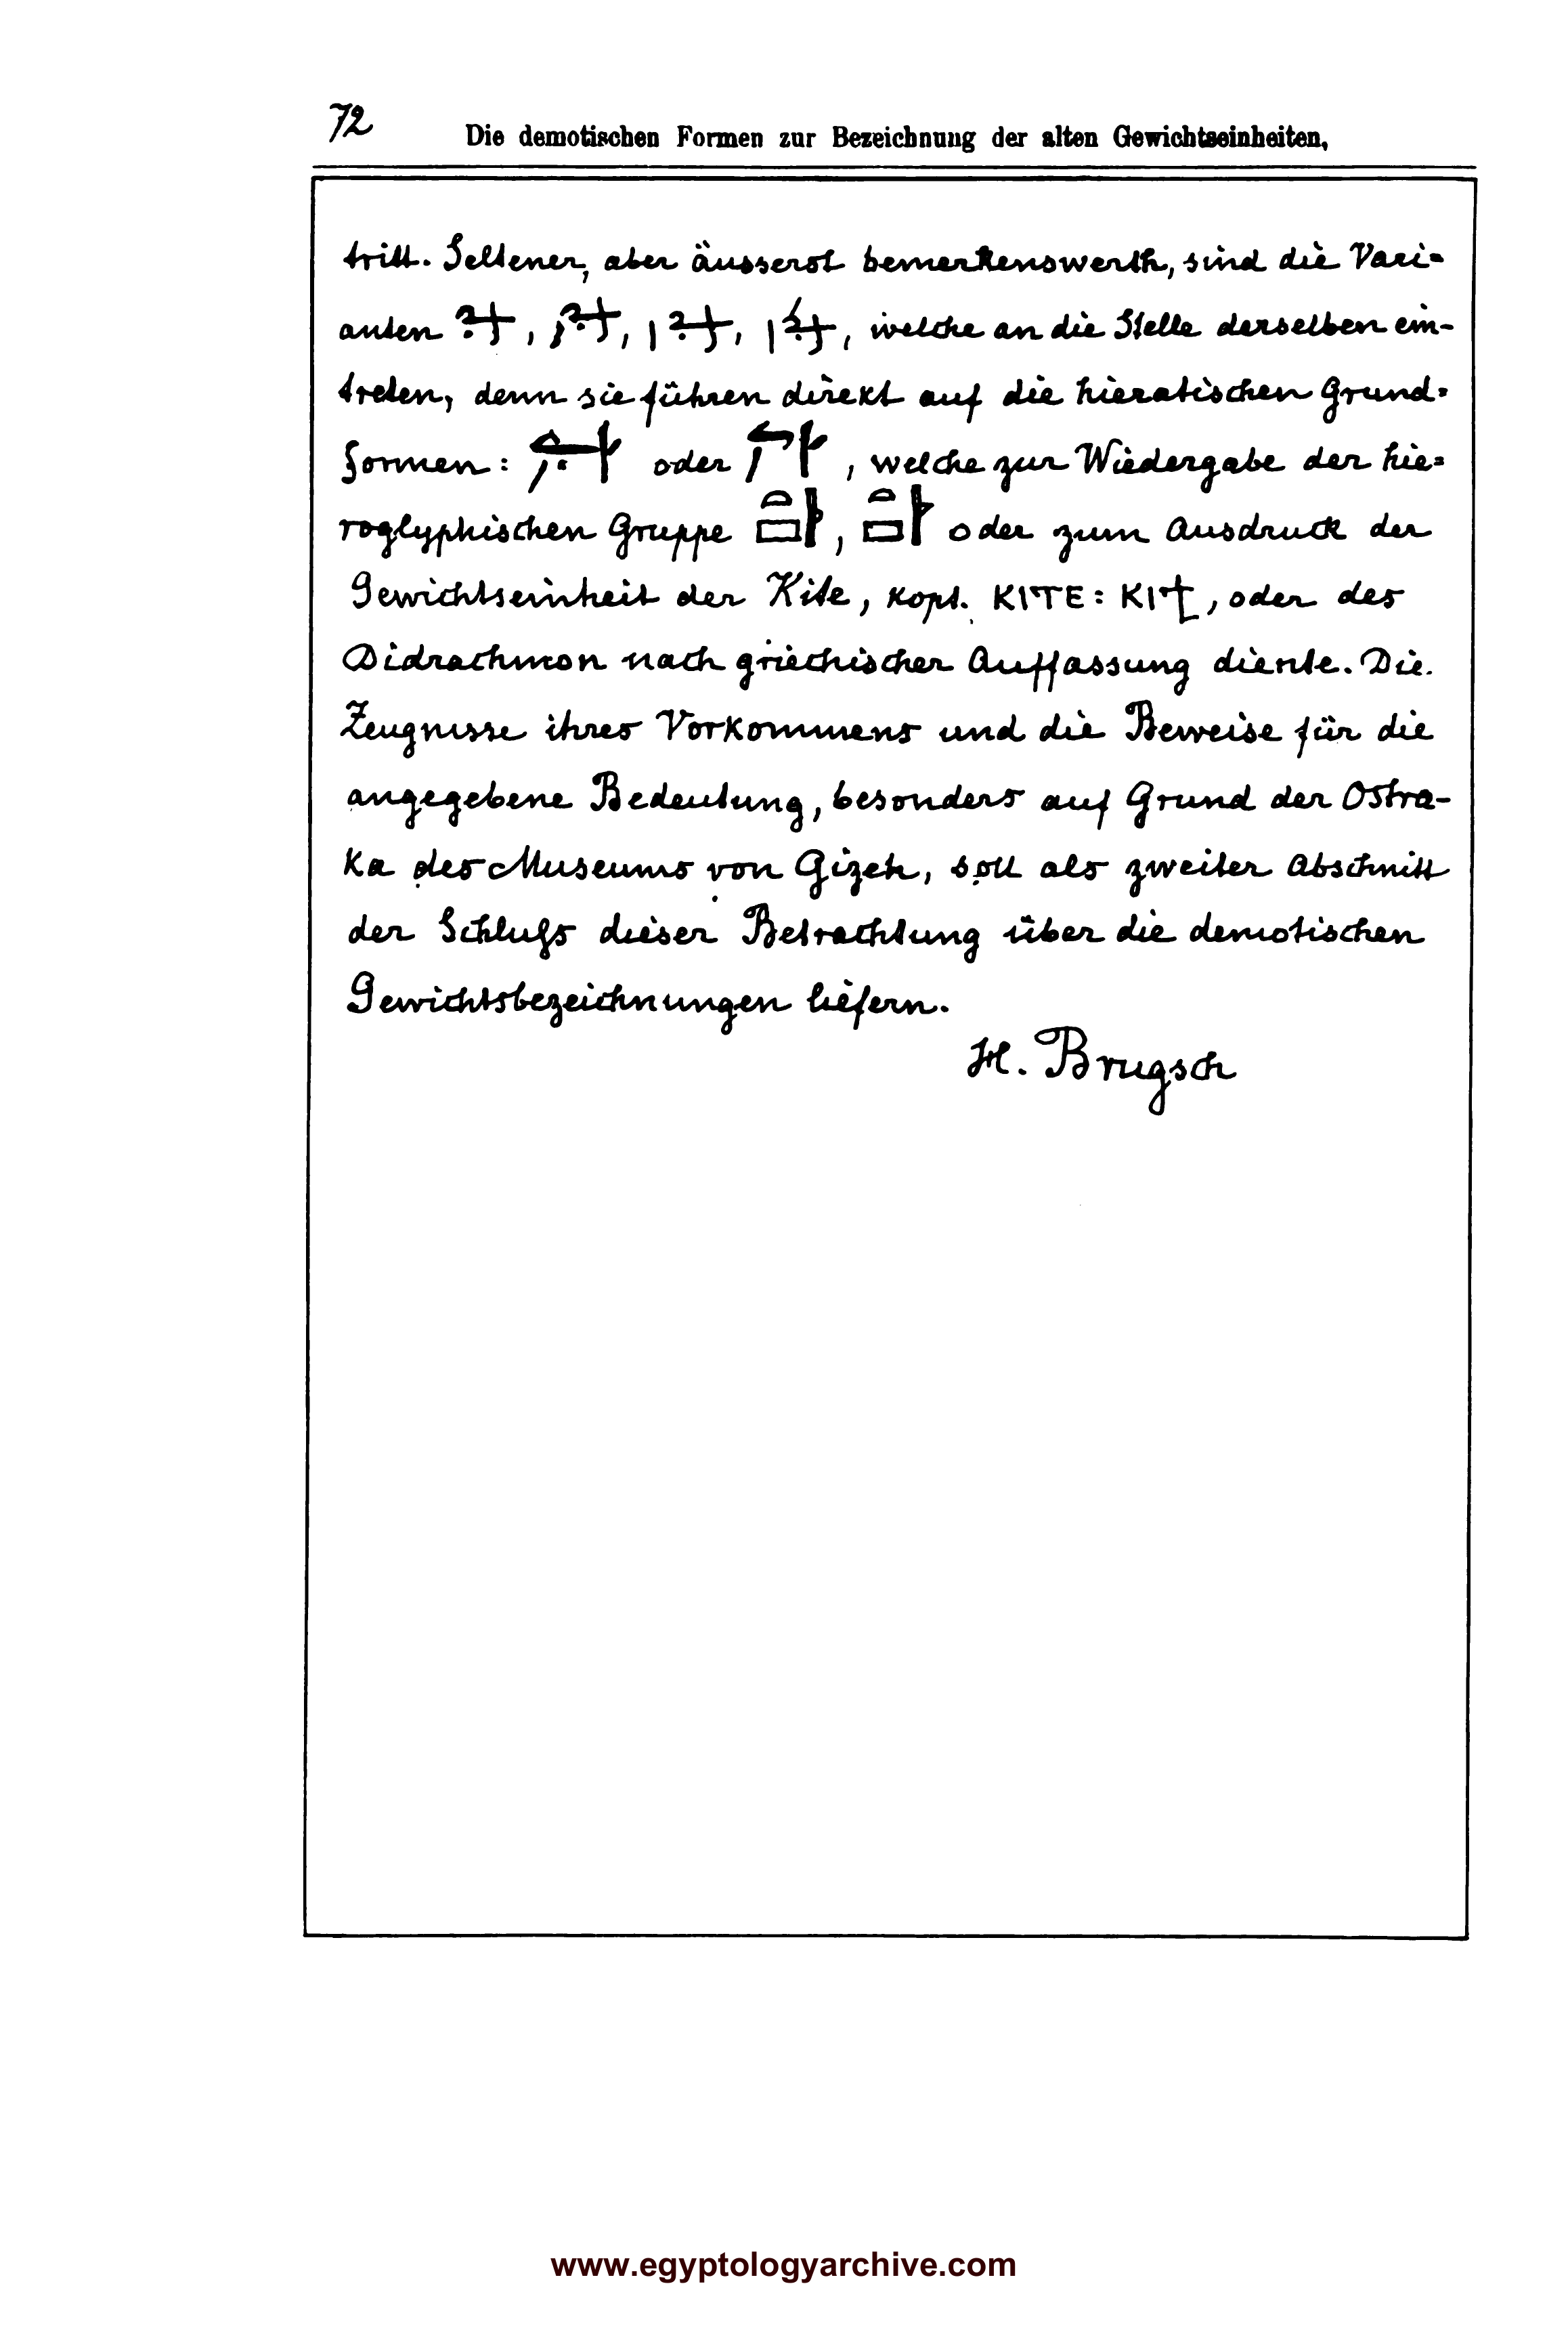 72
Die demotischen Formen zur Bezeichnung der alten Gewichtseinheiten,
tritt. Seltener, aber äusserst bemerkenswerth, sind die Vari-
anten , , , , welche an die Stelle derselben ein-
treten, denn sie führen direkt auf die hieratischen Grund-
formen: oder , welche zur Wiedergabe der hie-
roglyphischen Gruppe , oder zum Ausdruck der
Gewichtseinheit der Kite, kopt. ⲔⲒⲦⲈ: ⲔⲒϮ, oder des
Didrachmon nach griechischer Auffassung diente. Die
Zeugnisse ihres Vorkommens und die Beweise für die
angegebene Bedeutung, besonders auf Grund der Ostra-
ka des Museums von Gizeh, soll als zweiter Abschnitt
der Schluſs dieser Betrachtung über die demotischen
Gewichtsbezeichnungen liefern.
H. Brugsch
www.egyptologyarchive.com